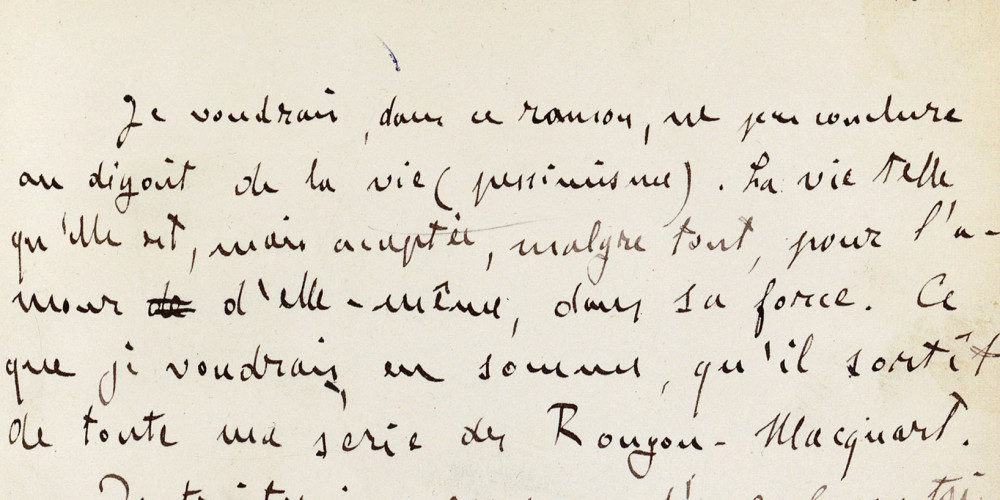 Je voudrais, dans ce roman, ne pas conclure
au dégoût de la vie (pessimisme). La vie telle
qu'elle est, mais acceptée, malgré tout, pour l'a-
mour de d'elle-même, dans sa force. Ce
que je voudrais, en somme, qu'il sortît
de toute ma série des Rougon-Macquart.